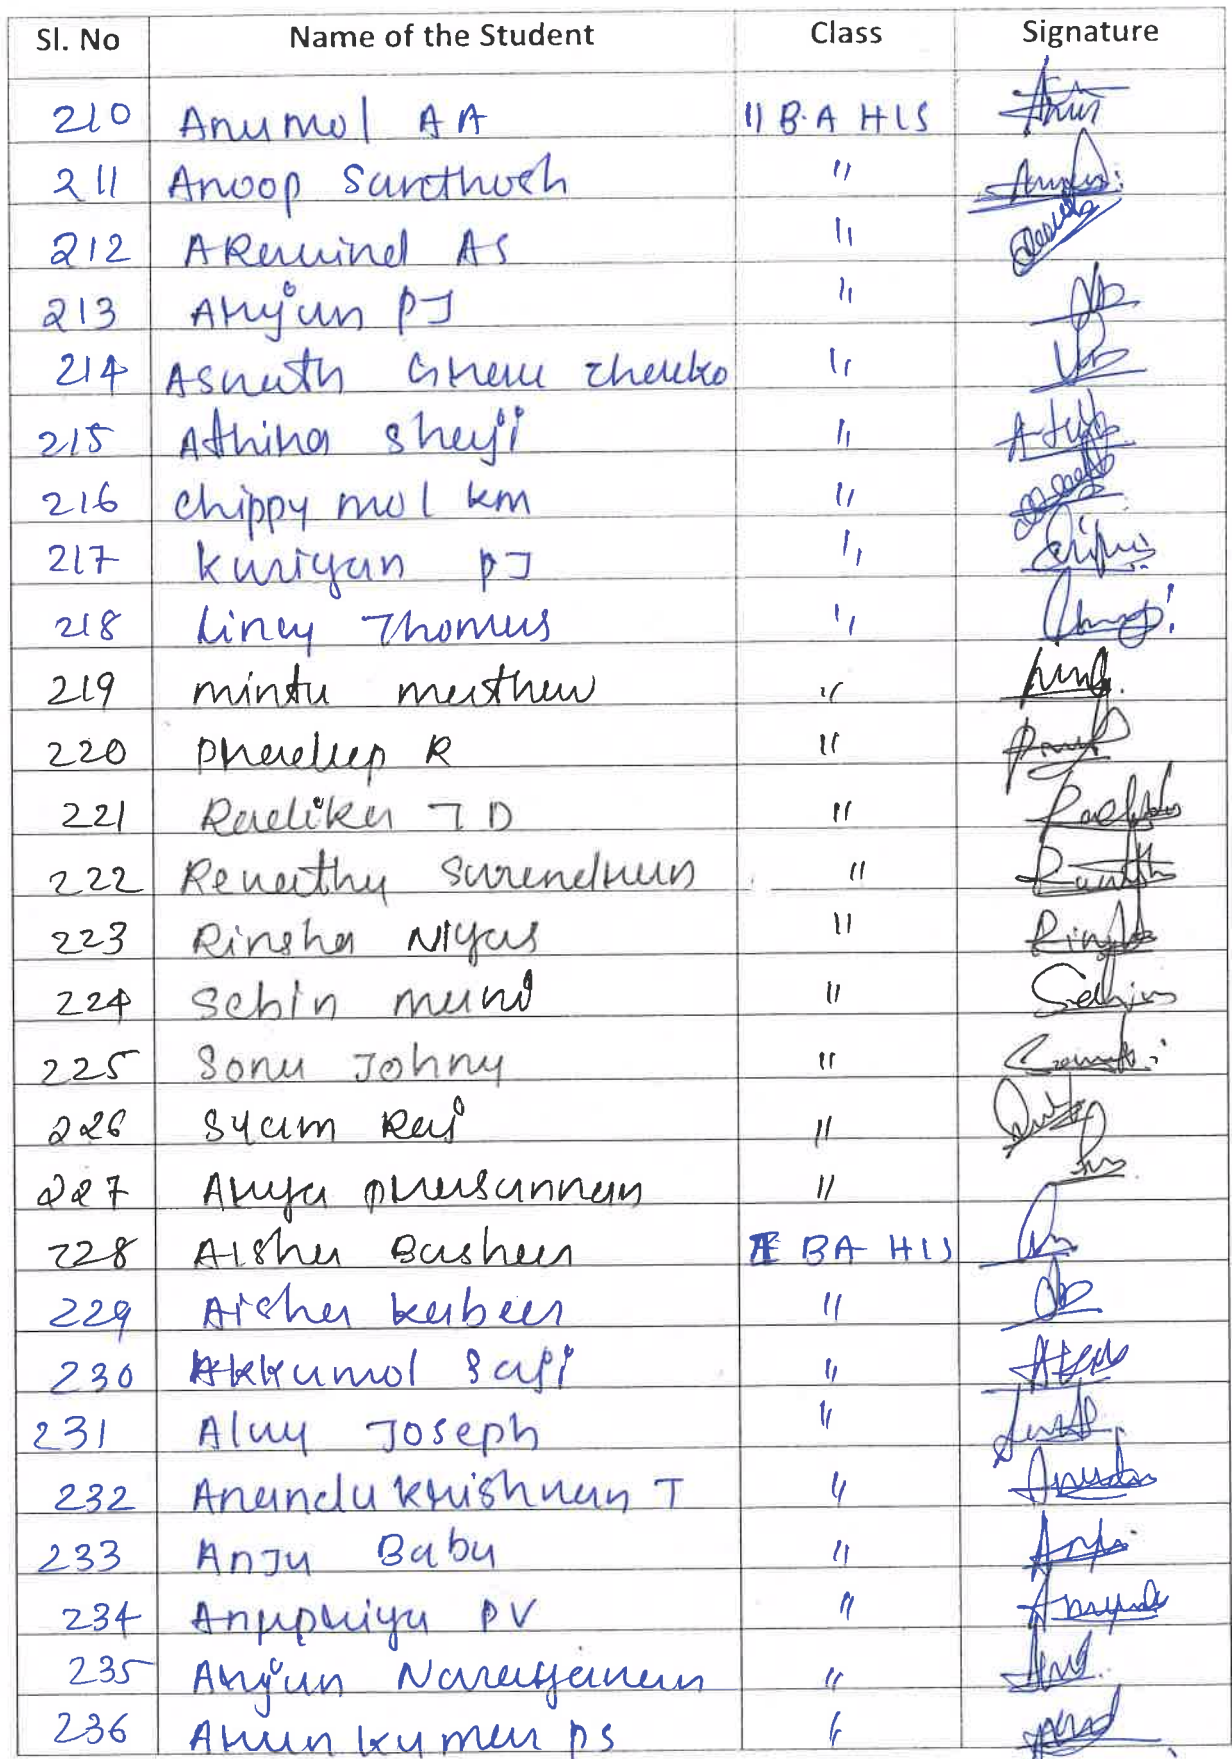 Sl. No Name of the Student Class Signature
210 Anumol A A II B.A HIS
211 Anoop Santhosh "
212 ARavind AS "
213 Arjun PJ "
214 Asnath Grace Chacko "
215 Athina Shaji "
216 Chippy mol km "
217 Kuriyan PJ "
218 Lincy Thomas "
219 mintu mathew "
220 Pradeep R "
221 Radika T D "
222 Revathy Surendran "
223 Rinsha Niyas "
224 Sebin mani "
225 Sonu Johny "
226 Syam Raj "
227 Arya prasannan "
228 Aisha Basheer BA HIS
229 Aisha kabeer "
230 Akkumol Saji "
231 Alay Joseph "
232 Anandu krishnan T "
233 Anju Babu "
234 Anupriya PV "
235 Arjun Narayanan "
236 Arun kumar PS "